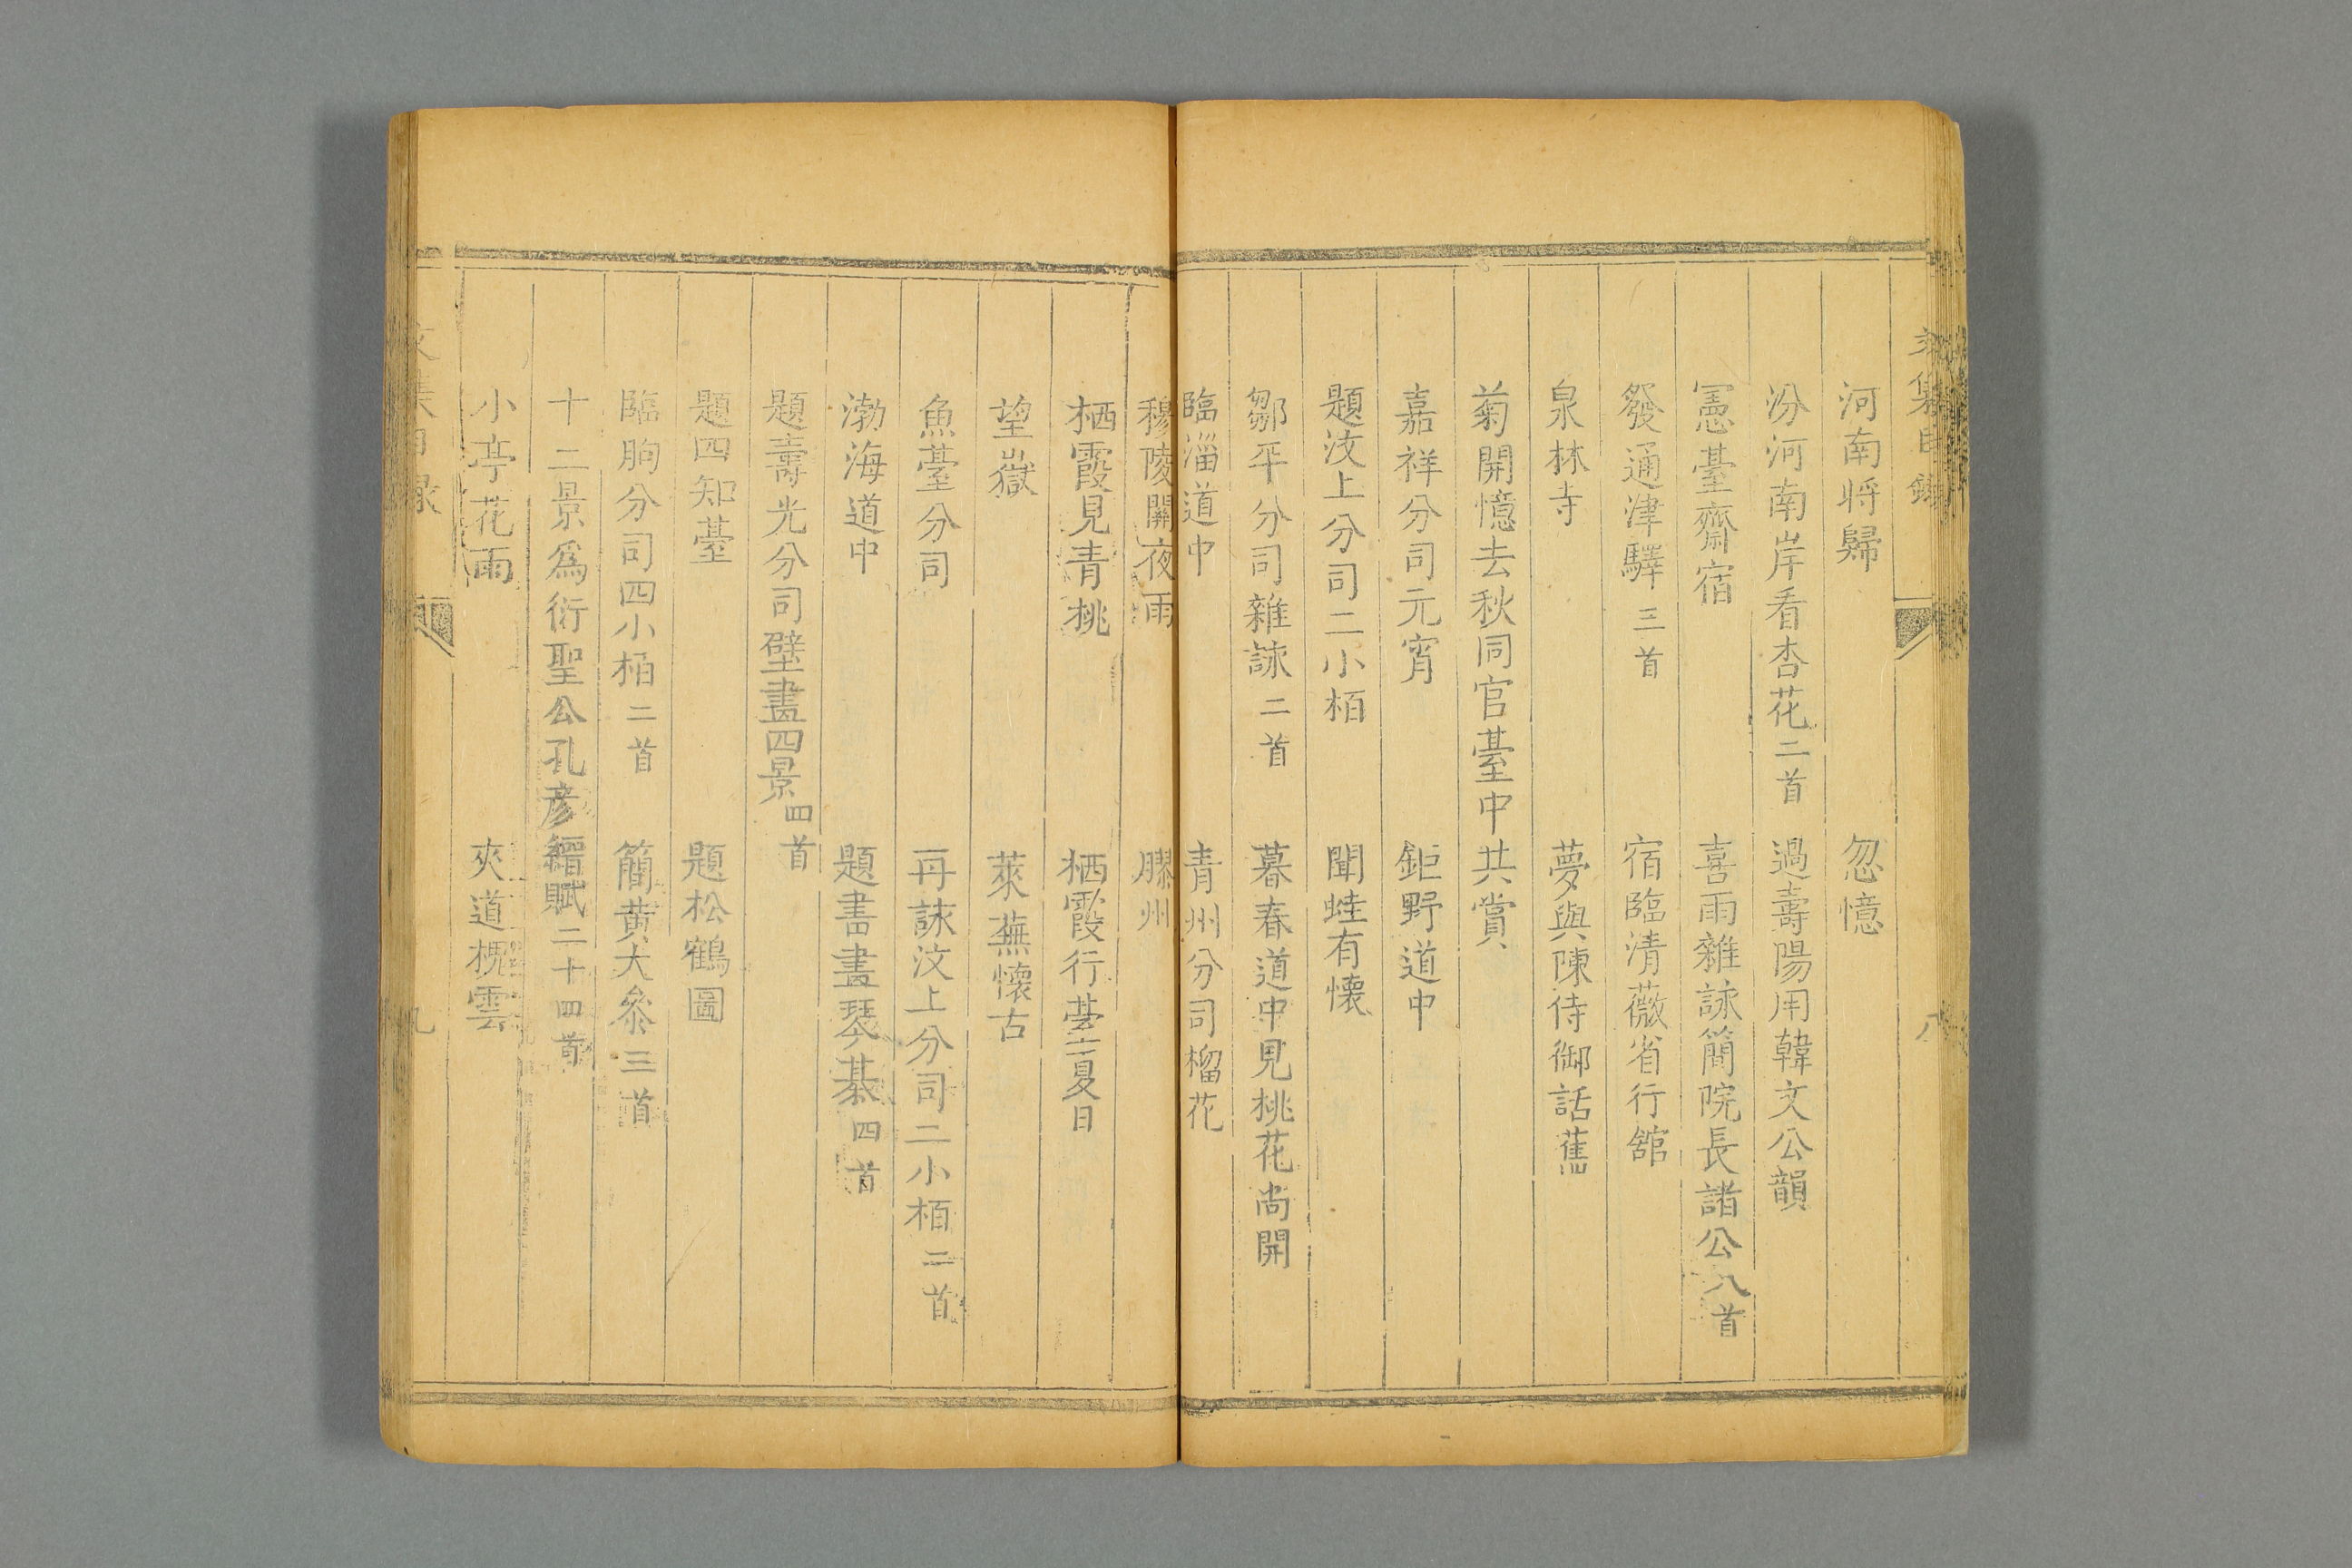 文集目錄 八
河南將歸 忽憶
汾河南岸看杏花二首 過壽陽用韓文公韻
憲臺齋宿 喜雨雜詠簡院長諸公八首
發通津驛三首 宿臨清薇省行舘
泉林寺 夢與陳侍御話舊
菊開憶去秋同官臺中共賞
嘉祥分司元宵 鉅野道中
題汶上分司二小栢 聞蛙有懷
鄒平分司雜詠二首 暮春道中見桃花尚開
臨淄道中 青州分司榴花
穆陵關夜雨 膠州
栖霞見青桃 栖霞行臺夏日
望嶽 萊蕪懷古
魚臺分司 再詠汶上分司二小栢二首
渤海道中 題書畫琴棊四首
題壽光分司壁畫四景四首
題四知臺 題松鶴圖
臨朐分司四小栢二首 簡黄大叅三首
十二景爲衍聖公孔彦縉賦二十四首
小亭花雨 夾道槐雲
文集目录 九